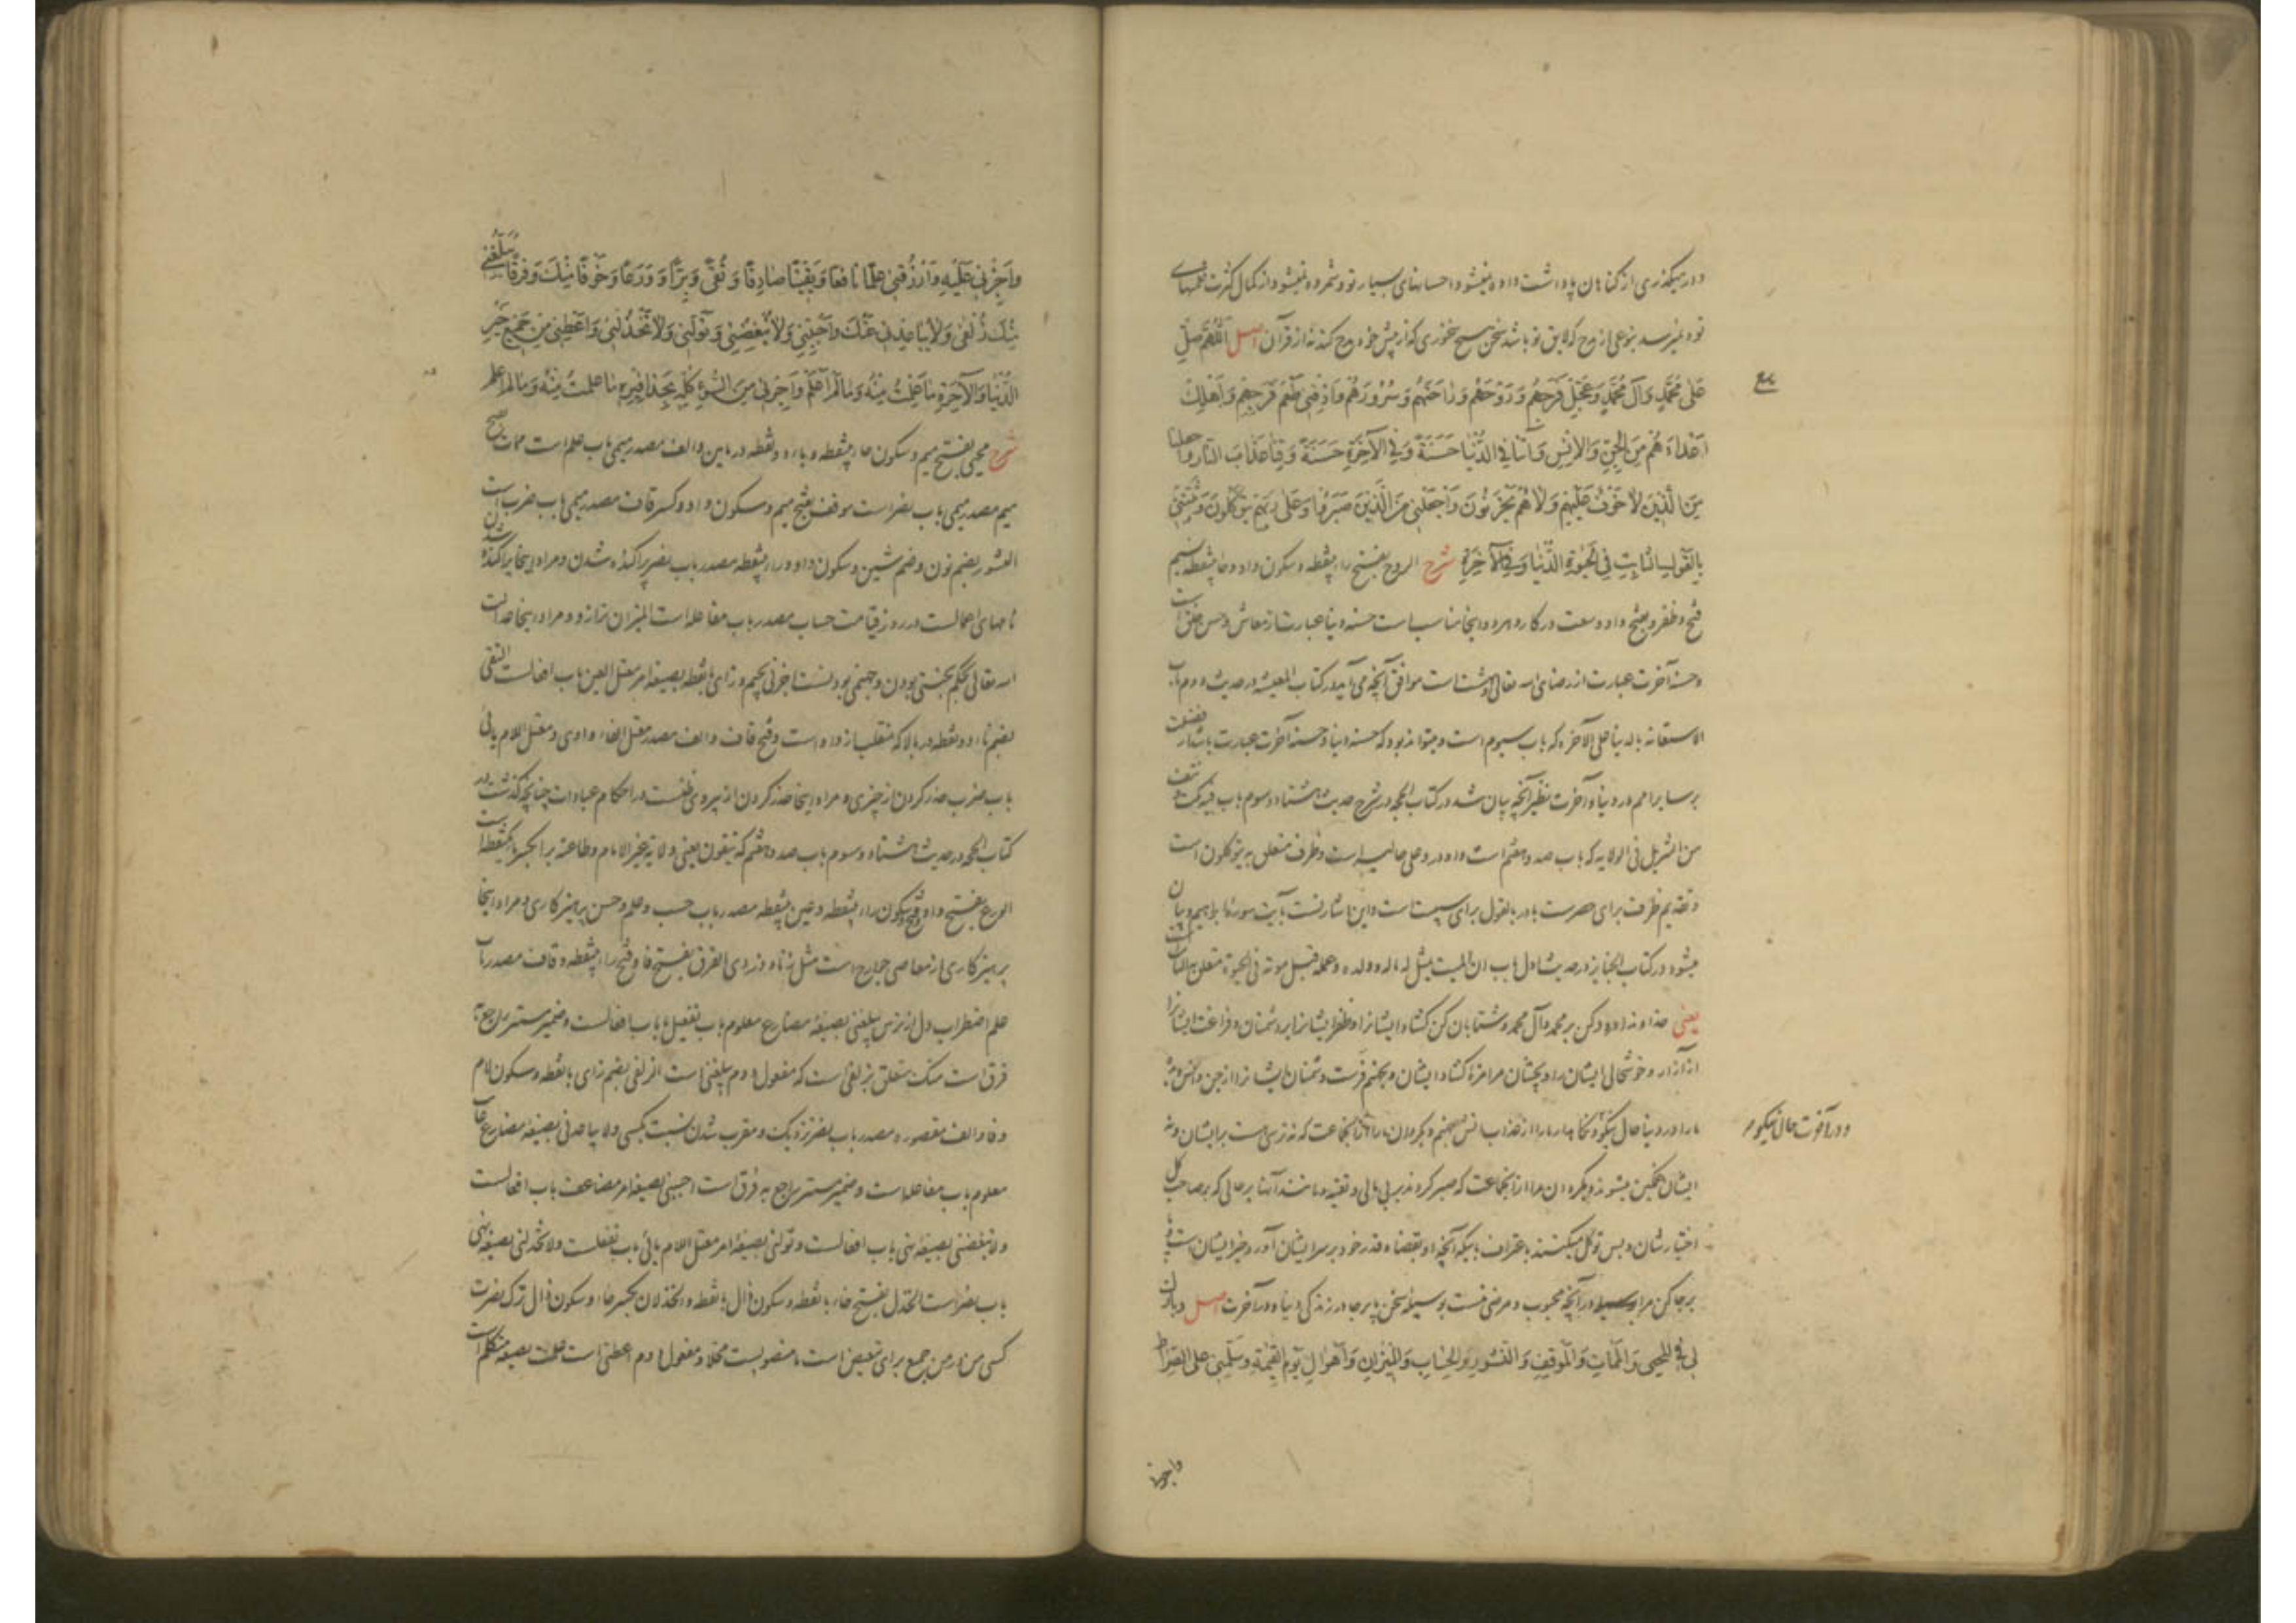 و در میگذری از گناهان پاداشت داده میشود و احسانهای بسیار تو و شمرده نمیشود از کمال کثرت نعمتهای
تو و نمیرسد بنوعی از مدح که لایق تو باشد سخن هیچ سخنوری که از پیش خود مدح کند نه از قرآن اصل اَللّهُمَّ صَلِّ
عَلی مُحَمَّدٍ وَآلِ مُحَمَّدٍ وَعَجِّلْ فَرَجَهُمْ وَرَوْحَهُمْ وَرٰاحَتَهُمْ وَسُرُورَهُمْ وَاَذِقْنی طَعْمَ فَرَجِهِمْ وَاَهْلِكْ
اَعْدٰاءَهُمْ مِنَ الْجِنِّ وَالْاِنْسِ وَآتِنٰا فِی الدُّنْیٰا حَسَنَةً وَفِی الْآخِرَةِ حَسَنَةً وَقِنٰا عَذٰابَ النّٰارِ وَاجعلنا
مِنَ الَّذینَ لاٰ خَوْفٌ عَلَیْهِمْ وَلاٰ هُمْ یَحْزَنُونَ وَاجْعَلْنی مِنَ الَّذینَ صَبَرُوا وَعَلیٰ رَبِّهِمْ یَتَوَکَّلُونَ وَثَبِّتْنی
بِالْقَوْلِ الثّٰابِتِ فِی الْحَیٰوةِ الدُّنْیٰا وَفِی الْآخِرَةِ شرح الروح بفتح راء بینقطه و سکون واو و حاء بینقطه نسیم
فتح و ظفر و بفتح واو وسعت در کار و هر دو اینجا مناسب است حسنه دنیا عبارت از معاش و حسن خلق است
و حسنه آخرت عبارت از رضای الله تعالی و بهشت است موافق آنچه می آید در کتاب المعیشة در حدیث دوم باب
الاستعانة بالدنیا علی الآخرة که باب سیوم است و میتواند بود که حسنه دنیا و حسنه آخرت عبارت باشد از فضیلت
بر سایر امم در دنیا و آخرت نظیر آنچه بیان شد در کتاب الحجة در شرح حدیث هشتاد و سوم باب فیه نکت و نتف
من التنزیل فی الولایة که باب صد و هفتم است واو در و علی حالیه است و ظرف متعلق به یتوکلون است
و تقدیم ظرف برای حصر است باء در بالقول برای سببیت است و این اشارتست بآیت سوره ابراهیم و بیان
میشود در کتاب الجنایز در حدیث اول باب ان المیت یمثل له ماله و ولده و عمله قبل موته فی الحیوة متعلق بالثابت است
یعنی خداوندا درود کن بر محمد و آل محمد و شتابان کن گشاد ایشانرا و ظفر ایشانرا بر دشمنان و فراغت ایشانرا
از آزار و خوشحالی ایشان را و بچشان مرا مزهٔ گشاد ایشان و بجهنم فرست دشمنان ایشانرا از جن و انس و بده
ما را در دنیا حال نیکو و نگاهدار ما را از عذاب آتش جهنم و بگردان ما را از آنجماعت که نه ترسی هست بر ایشان و نه
و در آخرت حال نیکو
ایشان غمگین میشوند و بگردان مرا از آنجماعت که صبر کردند بر بی مالی و تقیه و مانند آنها بر حالی که بر صاحب کل
اختیار شان و بس توکل میکنند باعتراف باینکه آنچه او بقضا و قدر خود بر سر ایشان آورد خیر ایشان است و پا
برجا کن مرا در آنچه محبوب و مرضی تست بوسیله سخن پابرجا در زندگی دنیا و در آخرت اصل و بارك
لی فِی الْمَحْیٰی وَالْمَمٰاتِ وَالْمَوْقِفِ وَالنُّشُورِ وَالْحِسٰابِ وَالْمیزٰانِ وَاَهْوٰالِ یَوْمِ الْقِیٰمَةِ وَسَلِّمْنی عَلَی الصِّرٰاطِ
واجزنی
وَاَجِزْنی عَلَیْهِ وَارْزُقْنی عِلْمًا نٰافِعًا وَیَقینًا صٰادِقًا وَتُقًی وَبِرًّا وَوَرَعًا وَخَوْفًا مِنْكَ وَفَرَقًا یُبَلِّغُنی
مِنْكَ زُلْفٰی وَلاٰ یُبٰاعِدُنی عَنْكَ وَاَحْبِبْنی وَلاٰ تُبْغِضْنی وَتَوَلَّنی وَلاٰ تَخْذُلْنی وَاَعْطِنی مِنْ جَمیعِ خَیْرِ
الدُّنْیٰا وَالْآخِرَةِ مٰا عَلِمْتُ مِنْهُ وَمٰا لَمْ اَعْلَمْ وَاَجِرْنی مِنَ السُّوءِ کُلِّهِ بِحَذٰافیرِهِ مٰا عَلِمْتُ مِنْهُ وَمٰا لَمْ اَعْلَمْ
شرح محیی بفتح میم و سکون حاء بینقطه و یاء دو نقطه در پایین و الف مصدر میمی باب علم است ممات بفتح
میم مصدر میمی باب نصر است موقف بفتح میم و سکون واو و کسر قاف مصدر میمی باب ضرب است
النشور بضم نون و ضم شین و سکون واو و راء بینقطه مصدر باب نصر پراکنده شدن و مراد اینجا پراکنده شدن
نامهای اعمالست در روز قیامت حساب مصدر باب مفاعله است المیزان ترازو و مراد اینجا عدالت
الله تعالی بحکم بهشتی بودن و جهنمی بودنست اجزنی بجیم و زای بانقطه بصیغه امر معتل العین باب افعالست التقی
بضم تاء دو نقطه در بالا که منقلب از واو است و فتح قاف و الف مصدر معتل الفاء واوی و معتل اللام یائی
باب ضرب حذر کردن از چیزی و مراد اینجا حذر کردن از پیروی ظنست در احکام عبادات چنانچه گذشت در
کتاب الحجة در حدیث هشتاد و سوم باب صد و هفتم که یتقون یعنی ولایة غیر الامام و طاعته بر بکسر باء یکنقطه است
الورع بفتح واو و فتح و سکون راء بینقطه و عین بینقطه مصدر باب حسب و علم و حسن پرهیزکاری و مراد اینجا
پرهیزکاری از معاصی جوارح است مثل زنا و دزدی الفرق بفتح فا و فتح راء بینقطه و قاف مصدر باب
علم اضطراب دل از ترس یبلغنی بصیغه مضارع معلوم باب تفعیل یا باب افعالست و ضمیر مستتر راجع به
فرق است منک متعلق بزلفی است که مفعول دوم یبلغنی است الزلفی بضم زای بانقطه و سکون لام
و فا و الف مقصوره مصدر باب نصر نزدیک و مقرب شدن نسبت بکسی و لا یباعدنی بصیغه مضارع غایب
معلوم باب مفاعله است و ضمیر مستتر راجع به فرق است احببنی بصیغه امر مضاعف باب افعالست
و لا تبغضنی بصیغه نهی باب افعالست و تولنی بصیغه امر معتل اللام یائی باب تفعلست و لا تخذلنی بصیغه نهی
باب نصر است الخذل بفتح خاء بانقطه و سکون ذال بانقطه و الخذلان بکسر خاء و سکون ذال ترک نصرت
کسی من در من جمیع برای تبعیض است منصوبست محلا و مفعول دوم اعطنی است علمت بصیغه متکلم است